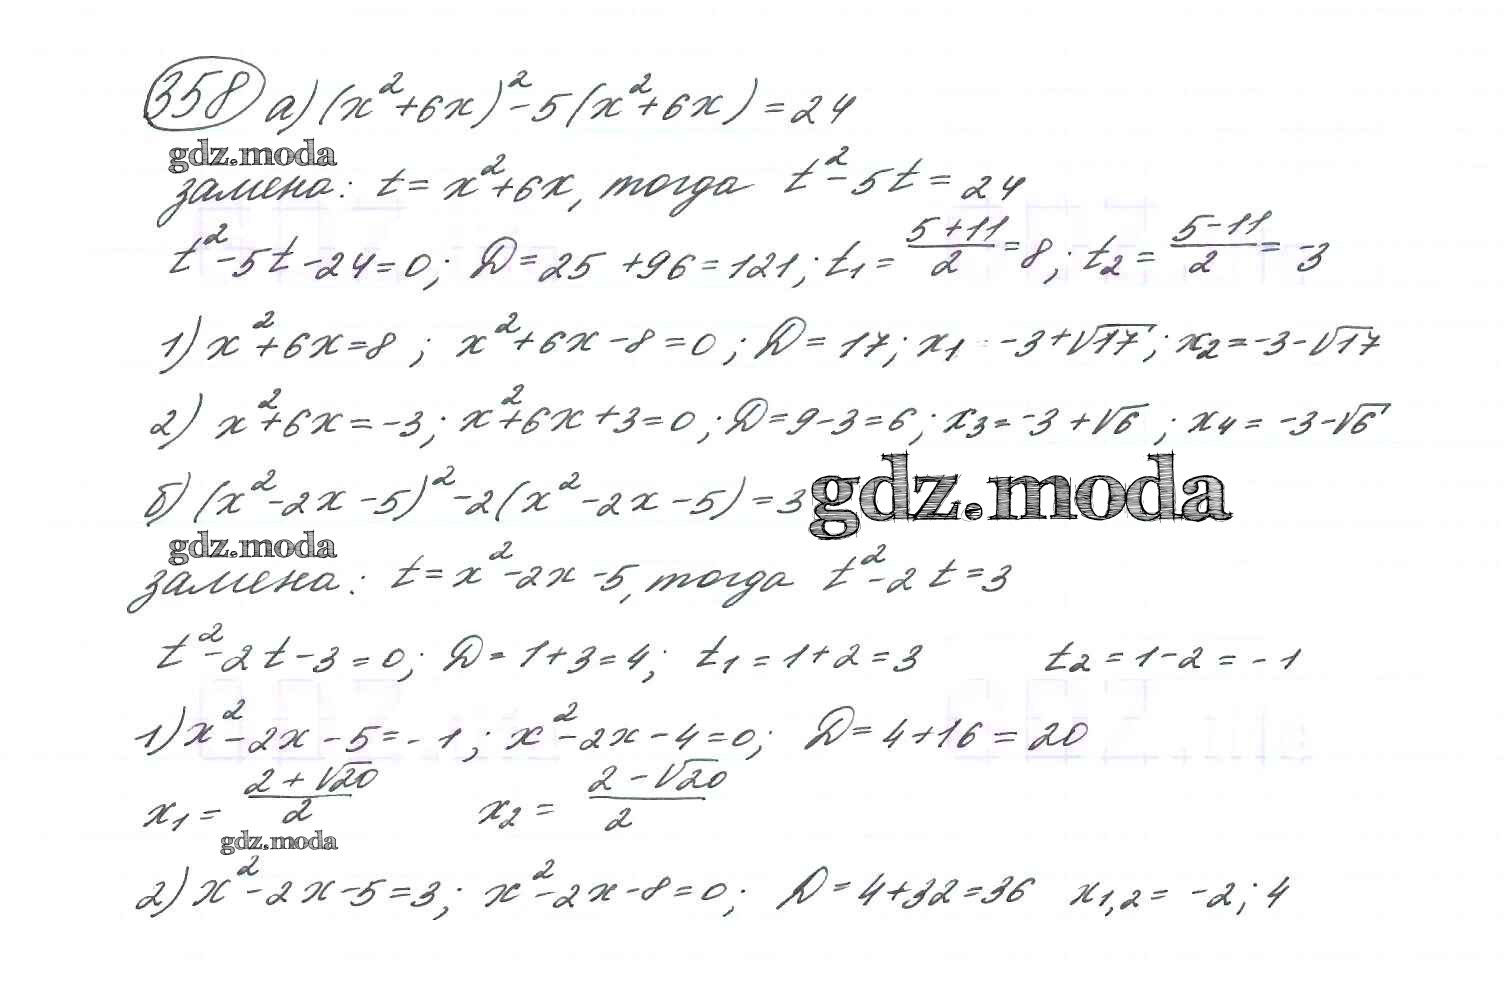 358 а) (x²+6x)²-5(x²+6x)=24
gdz.moda
замена: t=x²+6x, тогда t²-5t=24
t²-5t-24=0; D=25+96=121; t₁=(5+11)/2=8; t₂=(5-11)/2=-3
1) x²+6x=8; x²+6x-8=0; D=17; x₁ -3+√17; x₂=-3-√17
2) x²+6x=-3; x²+6x+3=0; D=9-3=6; x₃=-3+√6; x₄=-3-√6
б) (x²-2x-5)²-2(x²-2x-5)=3
gdz.moda
gdz.moda
замена: t=x²-2x-5, тогда t²-2t=3
t²-2t-3=0; D=1+3=4; t₁=1+2=3 t₂=1-2=-1
1) x²-2x-5=-1; x²-2x-4=0; D=4+16=20
x₁=(2+√20)/2 x₂=(2-√20)/2
gdz.moda
2) x²-2x-5=3; x²-2x-8=0; D=4+32=36 x₁,₂=-2; 4